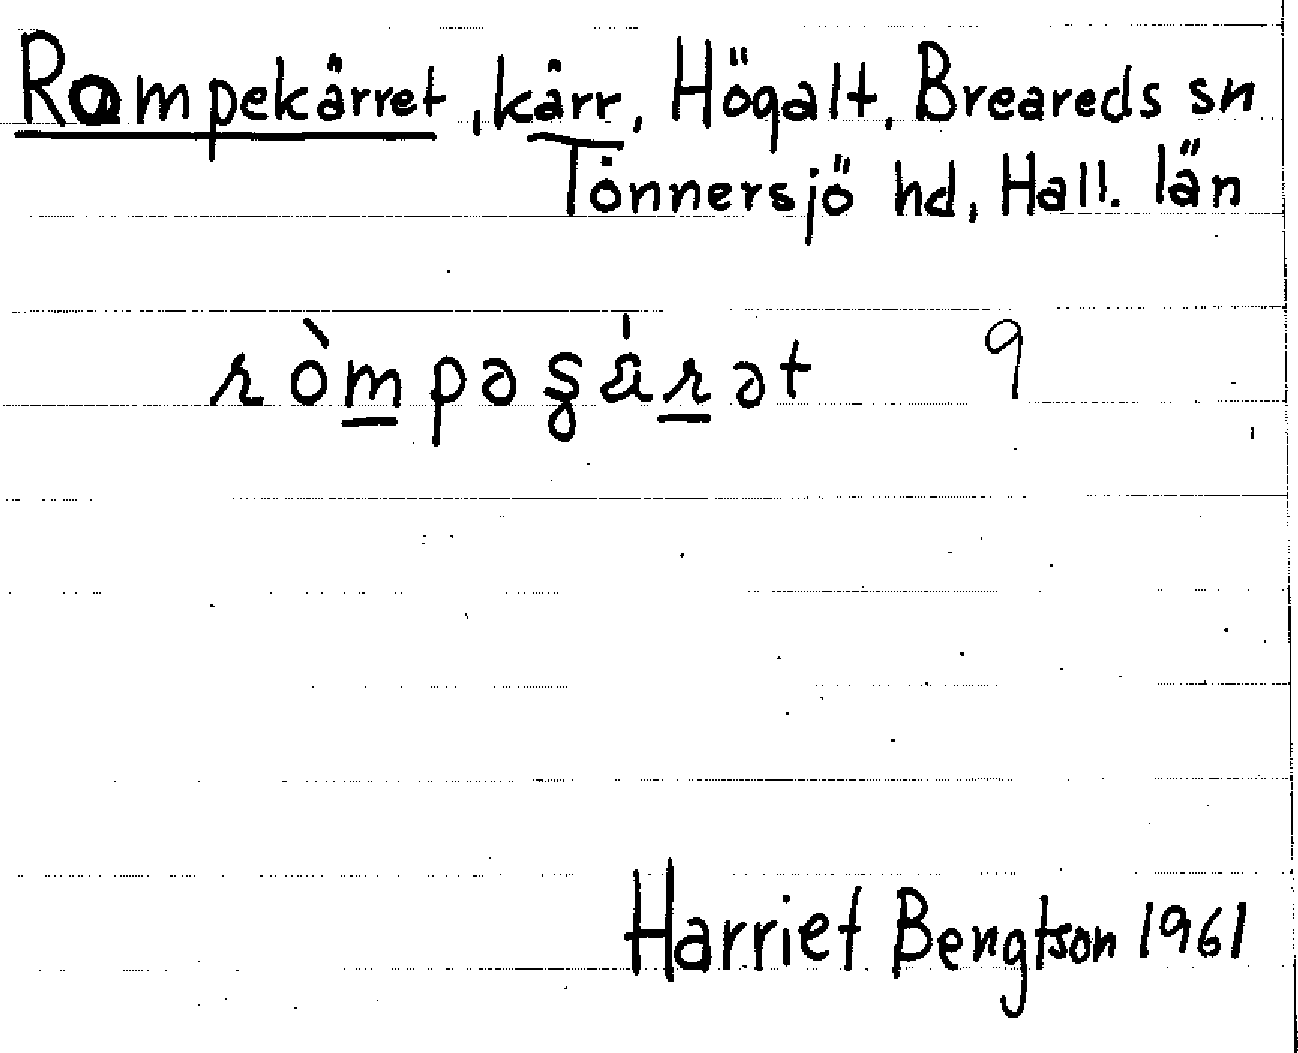 Rompekärret, kärr, Högalt, Breareds sn
Tönnersjö hd, Hall. län
ròmpəʂä́rət 9
Harriet Bengtson 1961